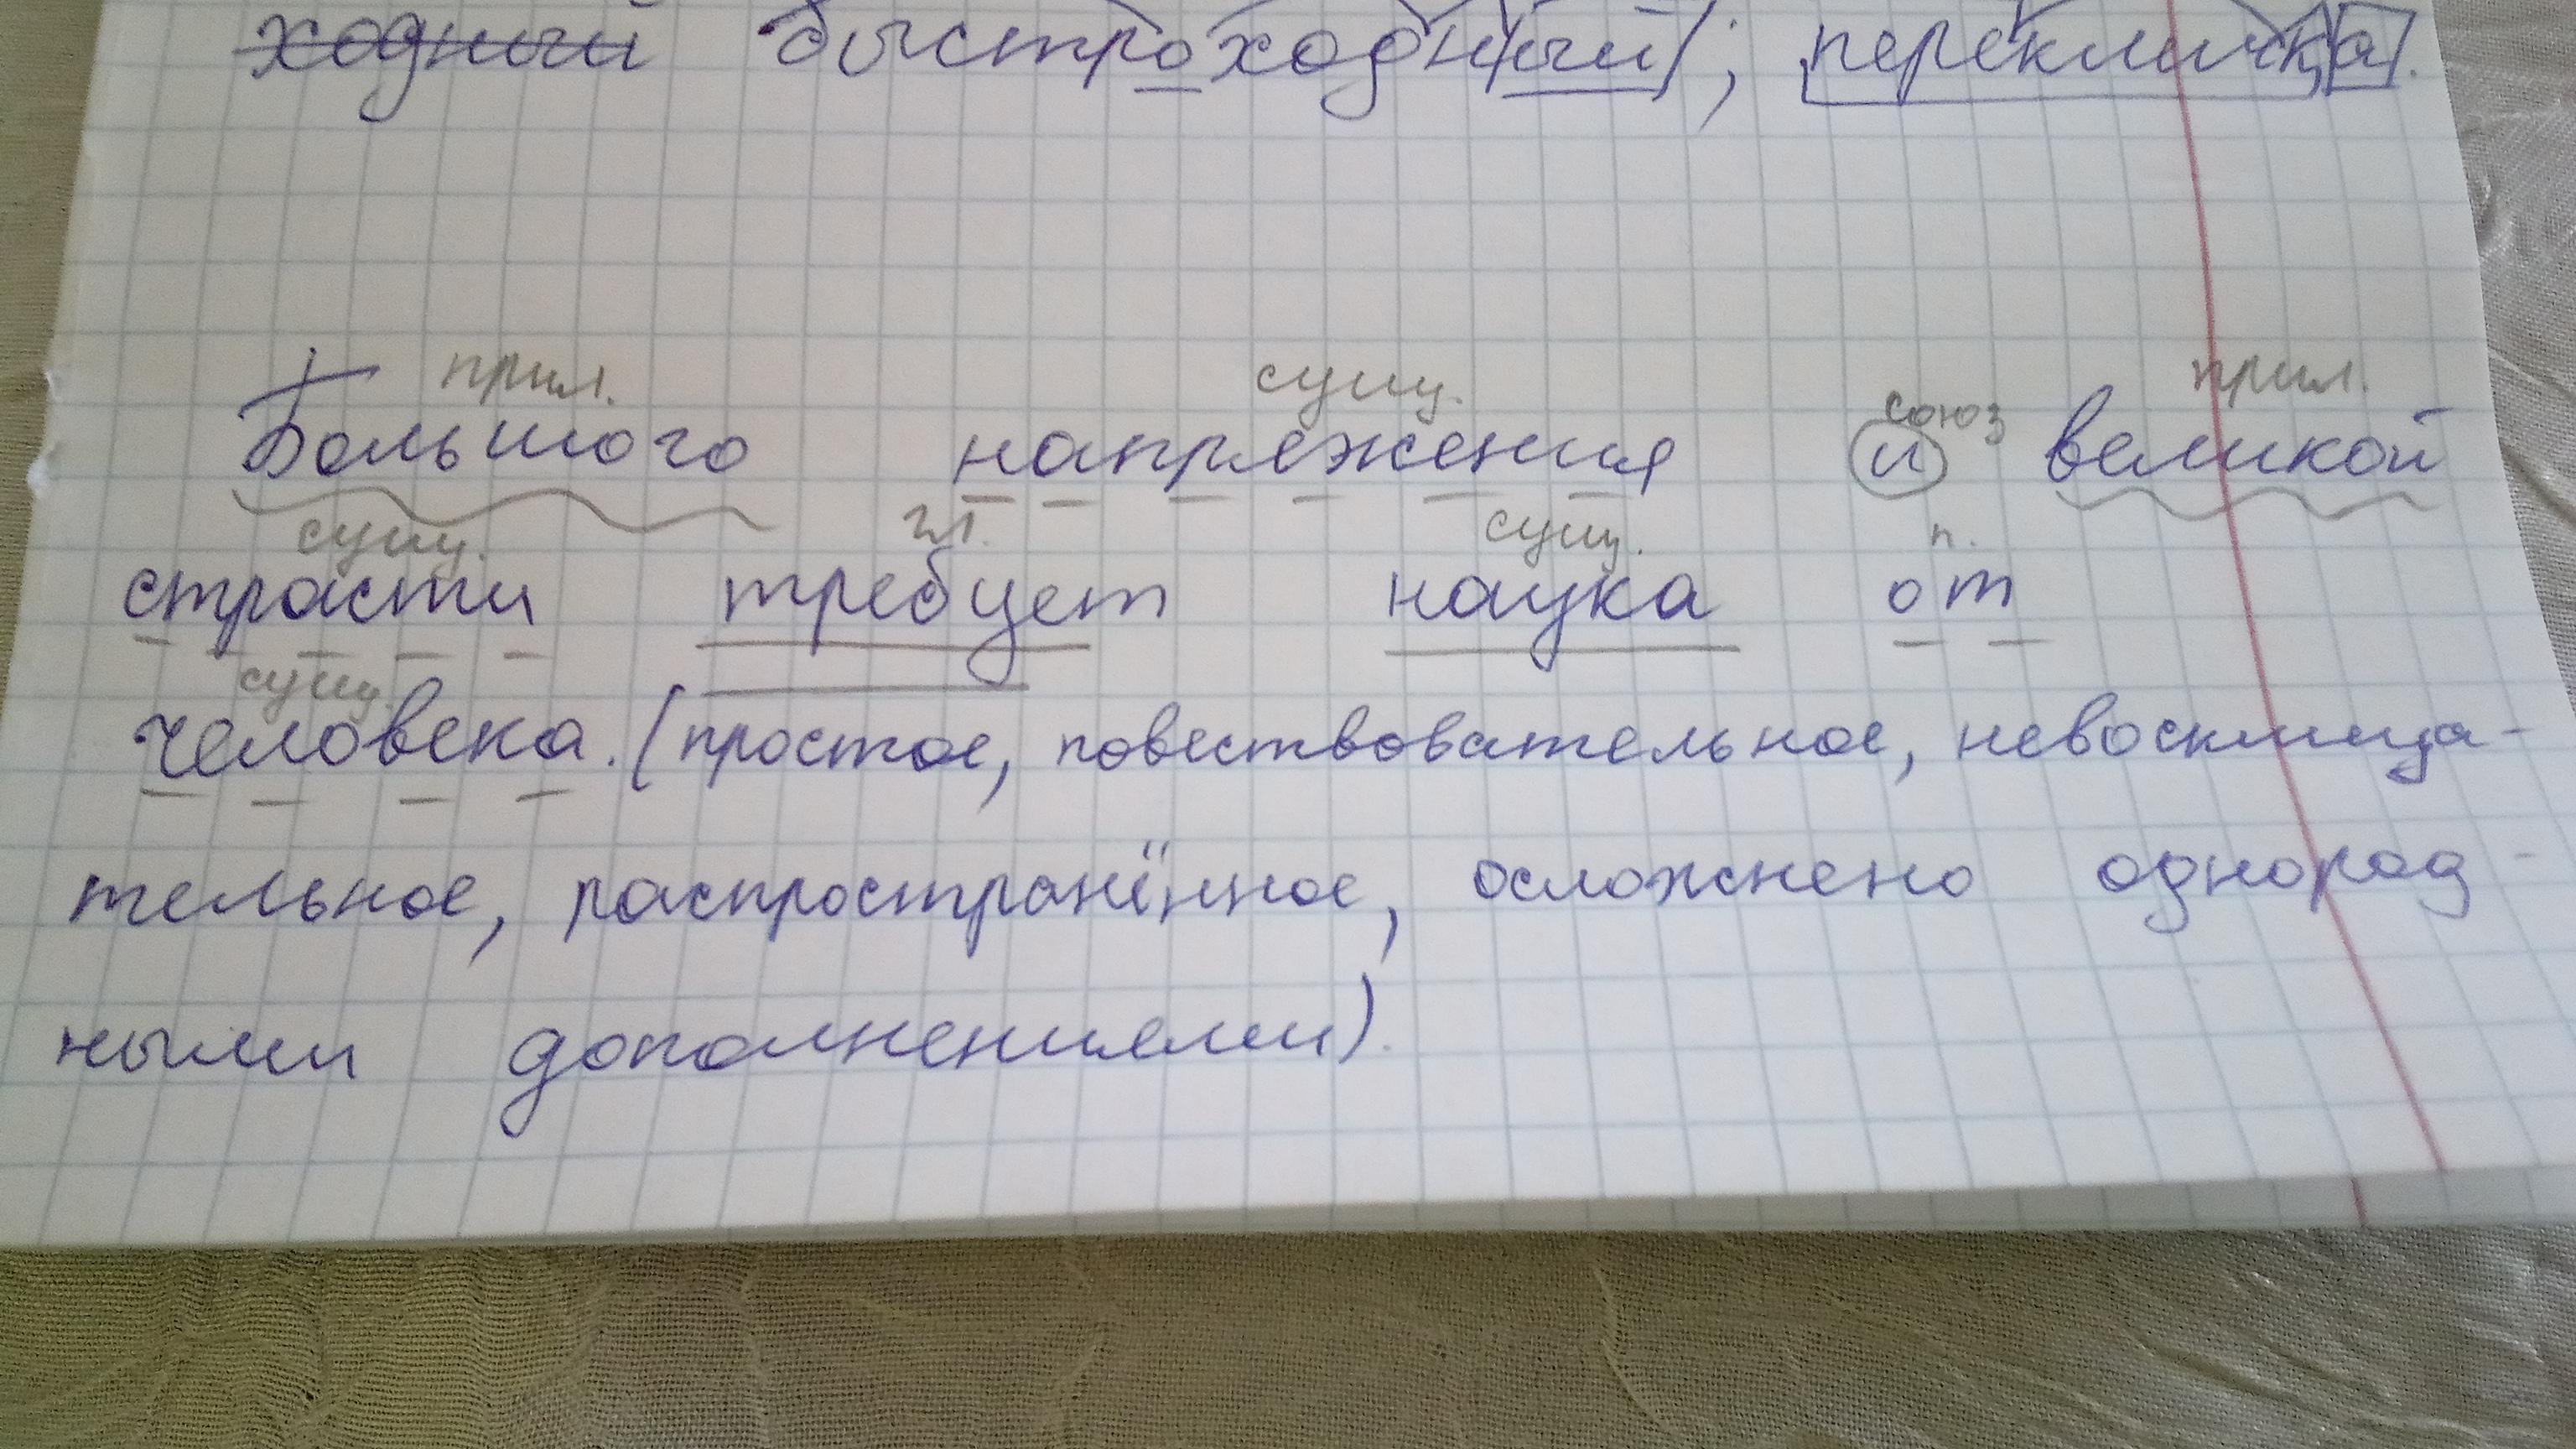 ходный быстроходный; перекличка.
прил. сущ. союз прил.
Большого напряжения и великой
сущ. гл. сущ. п.
страсти требует наука от
сущ.
человека. (простое, повествовательное, невосклица-
тельное, распространённое, осложнено однород-
ными дополнениями).